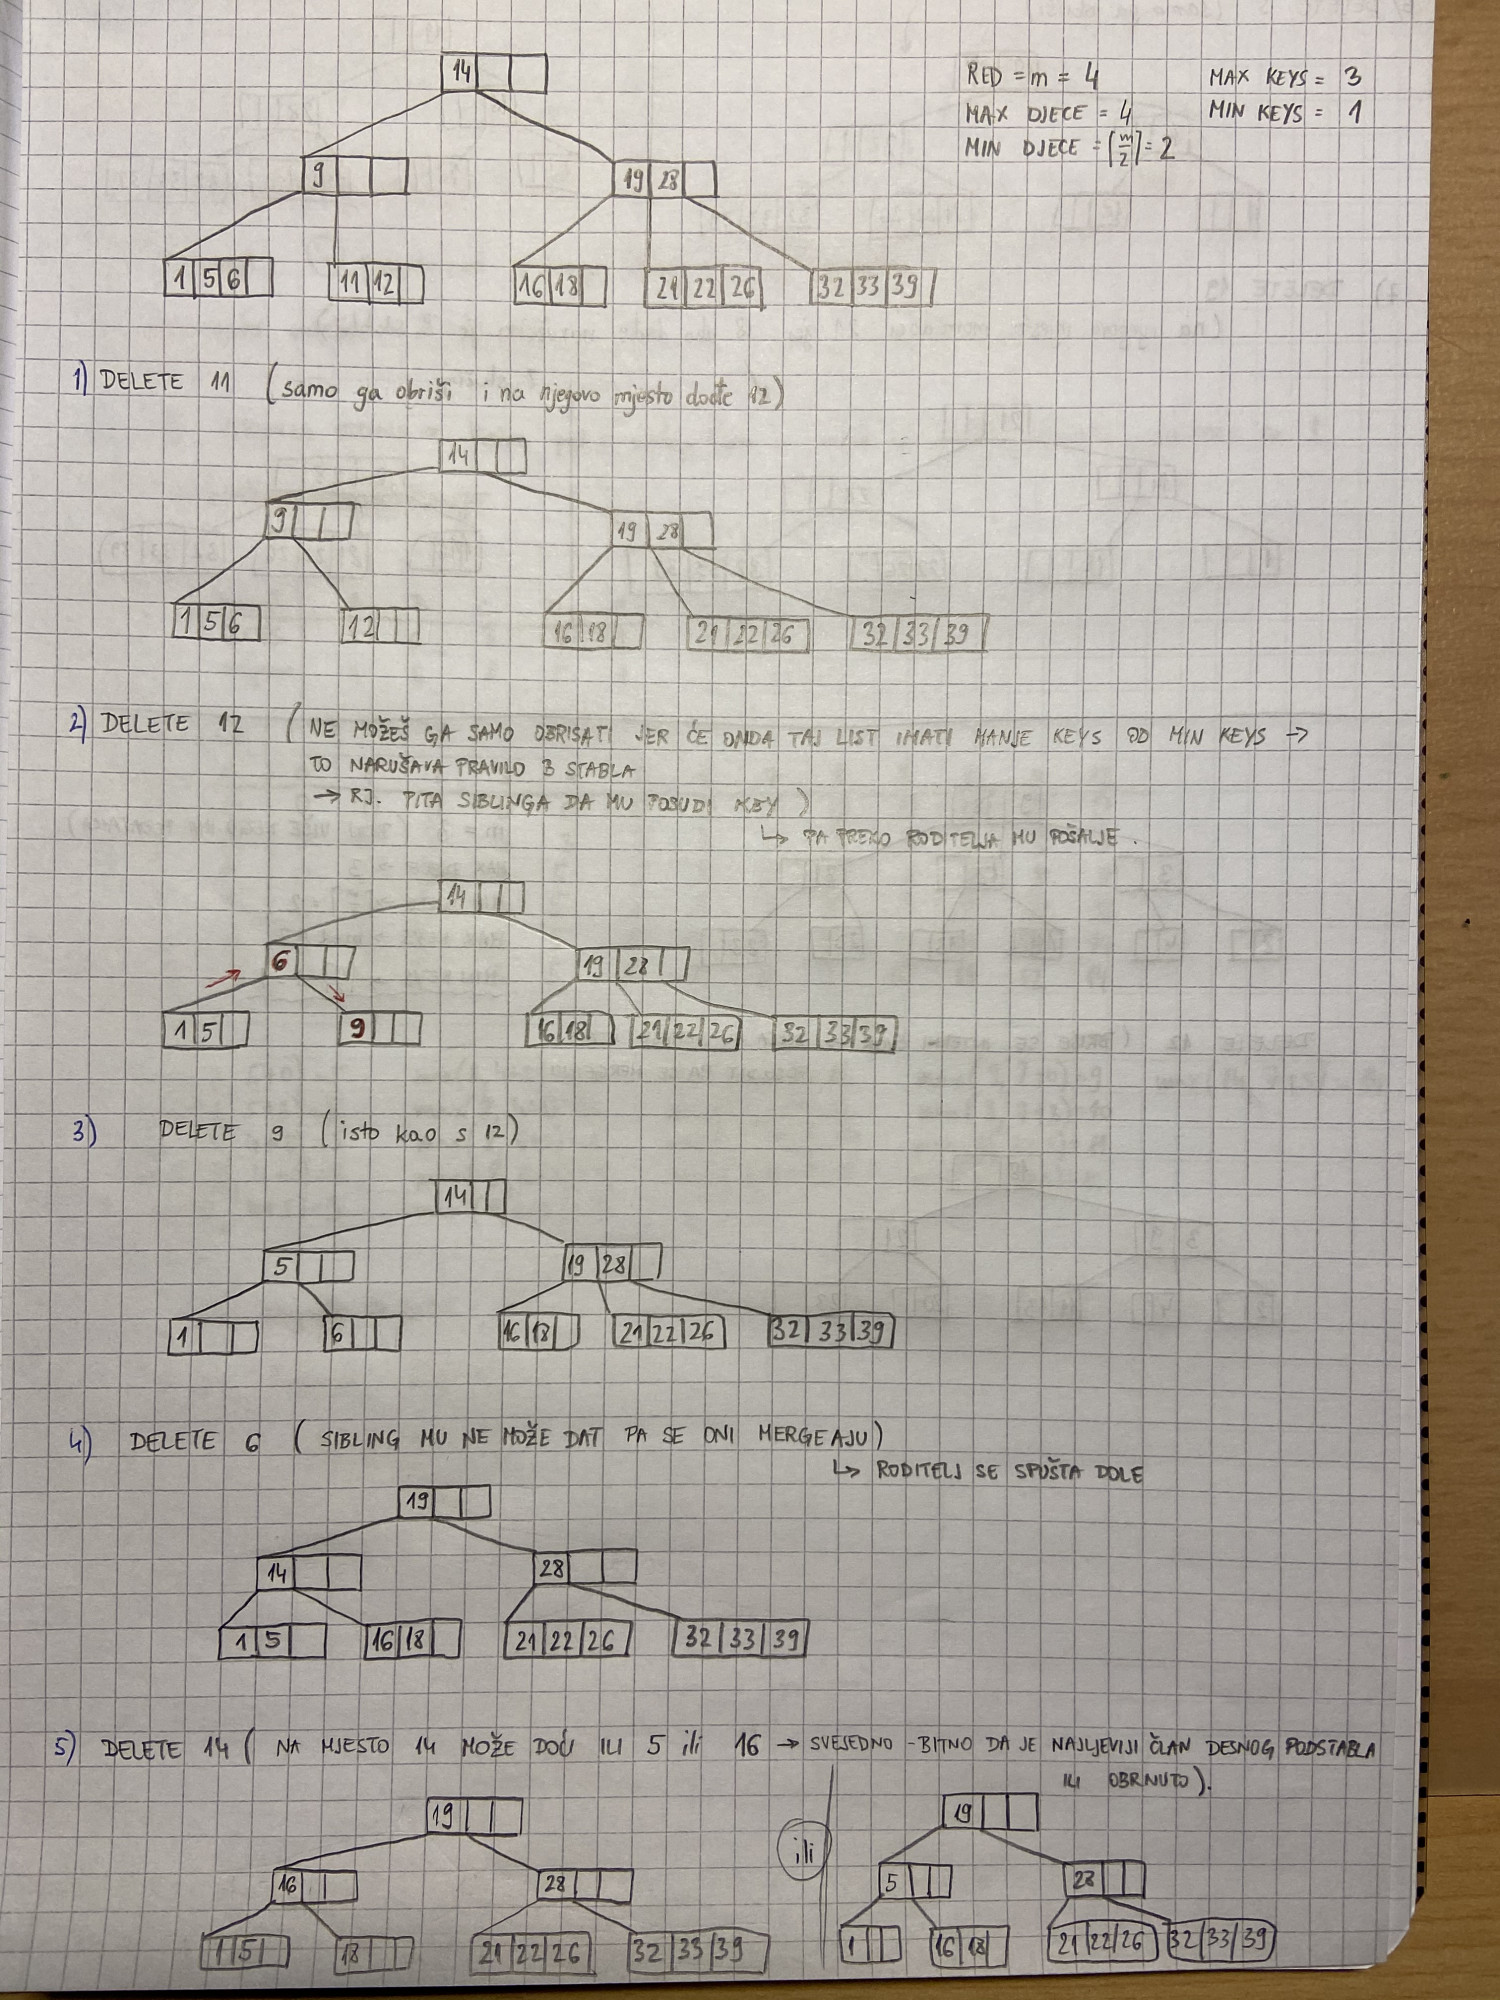 14
RED = m = 4 MAX KEYS = 3
MAX DJECE = 4 MIN KEYS = 1
MIN DJECE = ⌈m/2⌉ = 2
9 19 28
1 5 6 11 12 16 18 21 22 26 32 33 39
1) DELETE 11 (samo ga obriši i na njegovo mjesto dođe 12)
14
9 19 28
1 5 6 12 16 18 21 22 26 32 33 39
2) DELETE 12 (NE MOŽEŠ GA SAMO OBRISATI JER ĆE ONDA TAJ LIST IMATI MANJE KEYS OD MIN KEYS →
TO NARUŠAVA PRAVILO B STABLA
→ RJ. PITA SIBLINGA DA MU POSUDI KEY)
↳ PA PREKO RODITELJA MU POŠALJE.
14
6 19 28
1 5 9 16 18 21 22 26 32 33 39
3) DELETE 9 (isto kao s 12)
14
5 19 28
1 6 16 18 21 22 26 32 33 39
4) DELETE 6 (SIBLING MU NE MOŽE DAT PA SE ONI MERGEAJU)
↳ RODITELJ SE SPUŠTA DOLE
19
14 28
1 5 16 18 21 22 26 32 33 39
5) DELETE 14 (NA MJESTO 14 MOŽE DOĆI ILI 5 ili 16 → SVEJEDNO - BITNO DA JE NAJLJEVIJI ČLAN DESNOG PODSTABLA
ILI OBRNUTO).
19 ili 19
16 28 5 28
1 5 18 21 22 26 32 33 39 1 16 18 21 22 26 32 33 39